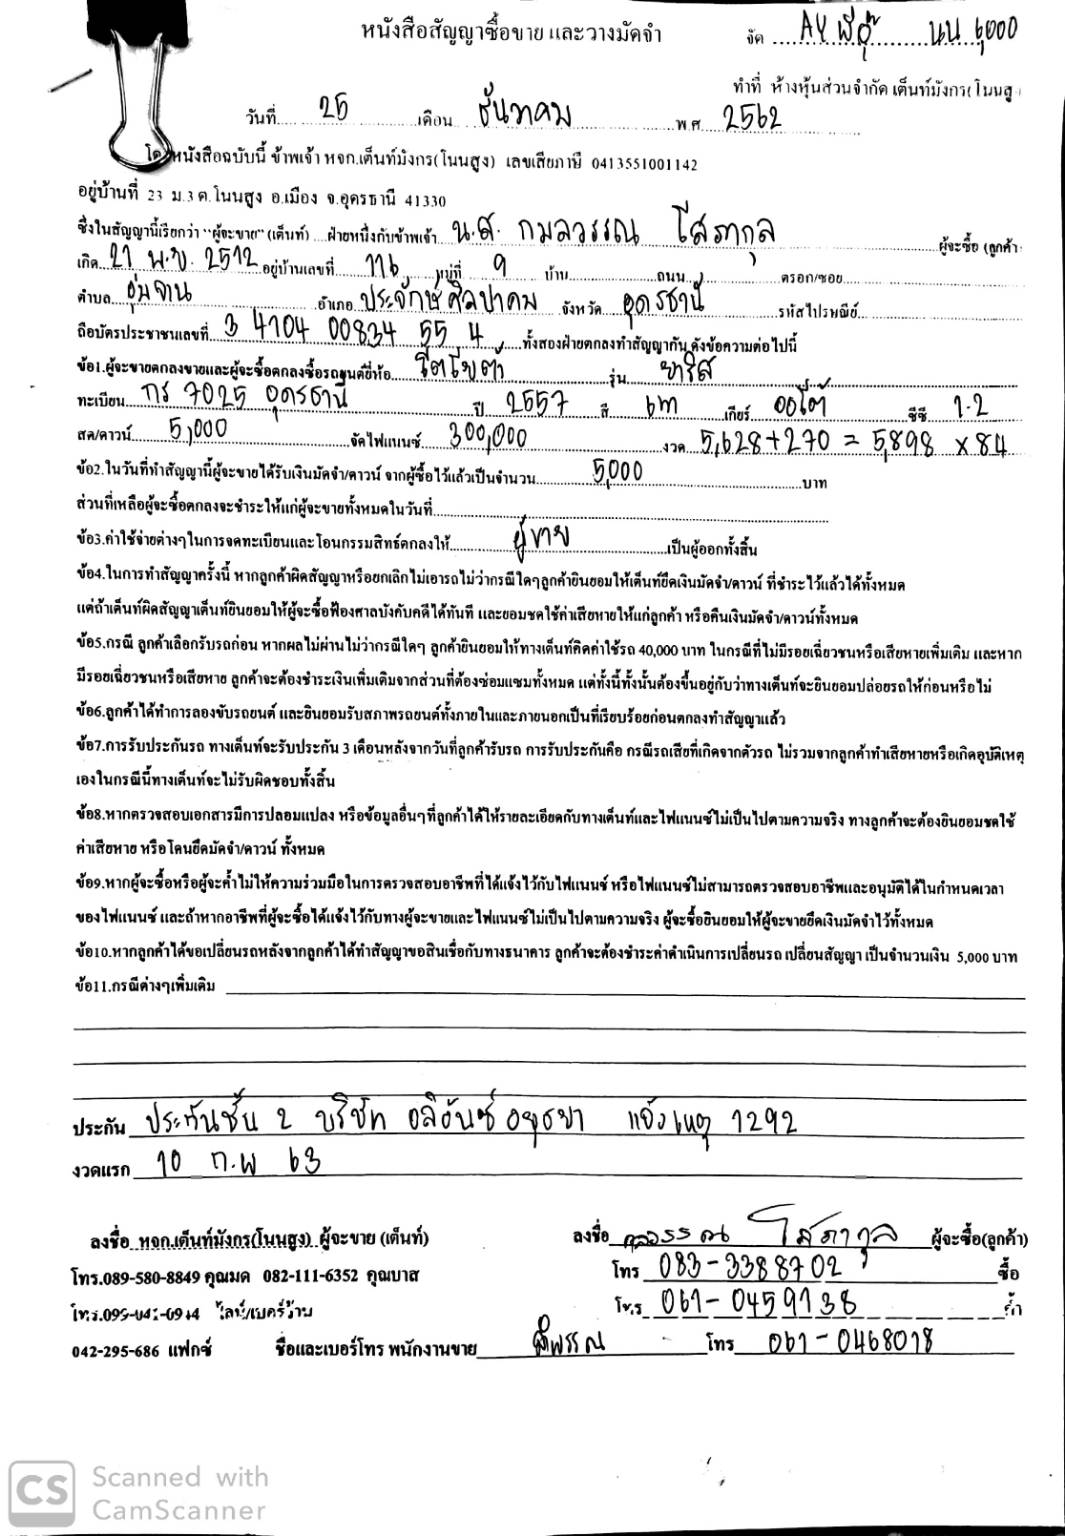 หนังสือสัญญาซื้อขาย และวางมัดจำ
จัด AY พี่อุ๊ นน 6,000
ทำที่ ห้างหุ้นส่วนจำกัด เต็นท์มังกร(โนนสู
วันที่ 25 เดือน ธันวาคม พ.ศ 2562
โดยหนังสือฉบับนี้ ข้าพเจ้า หจก.เต็นท์มังกร(โนนสูง) เลขเสียภาษี 0413551001142
อยู่บ้านที่ 23 ม.3 ต.โนนสูง อ.เมือง จ.อุดรธานี 41330
ซึ่งในสัญญานี้เรียกว่า "ผู้จะขาย" (เต็นท์) ฝ่ายหนึ่งกับข้าพเจ้า น.ส. กมลวรรณ โสภากุล ผู้จะซื้อ (ลูกค้า
เกิด 21 พ.ย. 2512 อยู่บ้านเลขที่ 116 หมู่ที่ 9 บ้าน ถนน ตรอก/ซอย
ตำบล อุ่มจาน อำเภอ ประจักษ์ศิลปาคม จังหวัด อุดรธานี รหัสไปรษณีย์
ถือบัตรประชาชนเลขที่ 3 4104 00834 55 4 ทั้งสองฝ่ายตกลงทำสัญญากัน ดังข้อความต่อไปนี้
ข้อ1.ผู้จะขายตกลงขายและผู้จะซื้อตกลงซื้อรถยนต์ยี่ห้อ โตโยต้า รุ่น ยาริส
ทะเบียน กร 7025 อุดรธานี ปี 2557 สี เทา เกียร์ ออโต้ ซีซี 1.2
สด/ดาวน์ 5,000 จัดไฟแนนซ์ 300,000 งวด 5,628+270 = 5,898 x 84
ข้อ2.ในวันที่ทำสัญญานี้ผู้จะขายได้รับเงินมัดจำ/ดาวน์ จากผู้ซื้อไว้แล้วเป็นจำนวน 5,000 บาท
ส่วนที่เหลือผู้จะซื้อตกลงจะชำระให้แก่ผู้จะขายทั้งหมดในวันที่
ข้อ3.ค่าใช้จ่ายต่างๆในการจดทะเบียนและโอนกรรมสิทธ์ตกลงให้ ผู้ขาย เป็นผู้ออกทั้งสิ้น
ข้อ4.ในการทำสัญญาครั้งนี้ หากลูกค้าผิดสัญญาหรือยกเลิกไม่เอารถไม่ว่ากรณีใดๆลูกค้ายินยอมให้เต็นท์ยึดเงินมัดจำ/ดาวน์ ที่ชำระไว้แล้วได้ทั้งหมด
แต่ถ้าเต็นท์ผิดสัญญาเต็นท์ยินยอมให้ผู้จะซื้อฟ้องศาลบังคับคดีได้ทันที และยอมชดใช้ค่าเสียหายให้แก่ลูกค้า หรือคืนเงินมัดจำ/ดาวน์ทั้งหมด
ข้อ5.กรณี ลูกค้าเลือกรับรถก่อน หากผลไม่ผ่านไม่ว่ากรณีใดๆ ลูกค้ายินยอมให้ทางเต็นท์คิดค่าใช้รถ 40,000 บาท ในกรณีที่ไม่มีรอยเฉี่ยวชนหรือเสียหายเพิ่มเติม และหาก
มีรอยเฉี่ยวชนหรือเสียหาย ลูกค้าจะต้องชำระเงินเพิ่มเติมจากส่วนที่ต้องซ่อมแซมทั้งหมด แต่ทั้งนี้ทั้งนั้นต้องขึ้นอยู่กับว่าทางเต็นท์จะยินยอมปล่อยรถให้ก่อนหรือไม่
ข้อ6.ลูกค้าได้ทำการลองขับรถยนต์ และยินยอมรับสภาพรถยนต์ทั้งภายในและภายนอกเป็นที่เรียบร้อยก่อนตกลงทำสัญญาแล้ว
ข้อ7.การรับประกันรถ ทางเต็นท์จะรับประกัน 3 เดือนหลังจากวันที่ลูกค้ารับรถ การรับประกันคือ กรณีรถเสียที่เกิดจากตัวรถ ไม่รวมจากลูกค้าทำเสียหายหรือเกิดอุบัติเหตุ
เองในกรณีนี้ทางเต็นท์จะไม่รับผิดชอบทั้งสิ้น
ข้อ8.หากตรวจสอบเอกสารมีการปลอมแปลง หรือข้อมูลอื่นๆที่ลูกค้าได้ให้รายละเอียดกับทางเต็นท์และไฟแนนซ์ไม่เป็นไปตามความจริง ทางลูกค้าจะต้องยินยอมชดใช้
ค่าเสียหาย หรือโดนยึดมัดจำ/ดาวน์ ทั้งหมด
ข้อ9.หากผู้จะซื้อหรือผู้จะค้ำไม่ให้ความร่วมมือในการตรวจสอบอาชีพที่ได้แจ้งไว้กับไฟแนนซ์ หรือไฟแนนซ์ไม่สามารถตรวจสอบอาชีพและอนุมัติได้ในกำหนดเวลา
ของไฟแนนซ์ และถ้าหากอาชีพที่ผู้จะซื้อได้แจ้งไว้กับทางผู้จะขายและไฟแนนซ์ไม่เป็นไปตามความจริง ผู้จะซื้อยินยอมให้ผู้จะขายยึดเงินมัดจำไว้ทั้งหมด
ข้อ10.หากลูกค้าได้ขอเปลี่ยนรถหลังจากลูกค้าได้ทำสัญญาขอสินเชื่อกับทางธนาคาร ลูกค้าจะต้องชำระค่าดำเนินการเปลี่ยนรถ เปลี่ยนสัญญา เป็นจำนวนเงิน 5,000 บาท
ข้อ11.กรณีต่างๆเพิ่มเติม
ประกัน ประกันชั้น 2 บริษัท อลิอันซ์อยุธยา แจ้งเหตุ 1292
งวดแรก 10 ก.พ 63
ลงชื่อ หจก.เต็นท์มังกร(โนนสูง) ผู้จะขาย (เต็นท์) ลงชื่อ กมลวรรณ โสภากุล ผู้จะซื้อ(ลูกค้า)
โทร.089-580-8849 คุณมด 082-111-6352 คุณบาส โทร 083-3388702 ซื้อ
โทร. ไลน์/เบอร์ร้าน โทร 061-0459138 ค้ำ
042-295-686 แฟกซ์ ชื่อและเบอร์โทร พนักงานขาย โทร 061-0468018
CS Scanned with
CamScanner